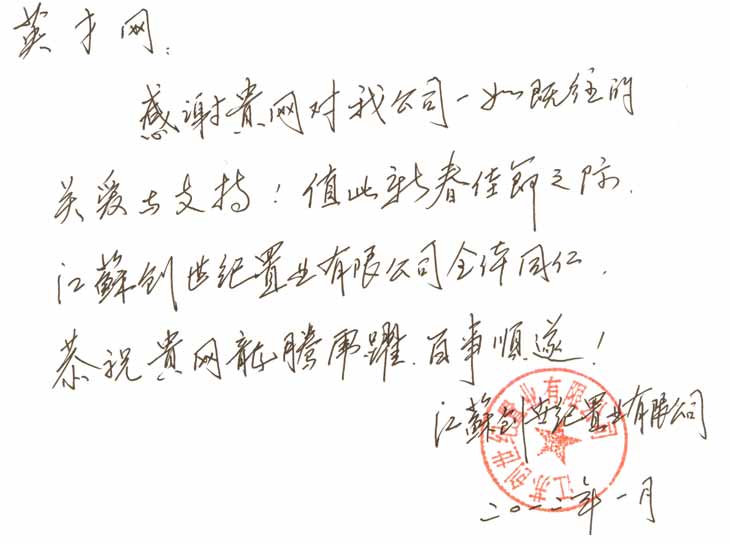 英才网：
感谢贵网对我公司一如既往的
关爱与支持！值此新春佳节之际，
江蘇创世纪置业有限公司全体同仁，
恭祝贵网龍腾虎躍，百事順遂！
江蘇创世纪置业有限公司
二〇一二年一月
江苏创世纪置业有限公司